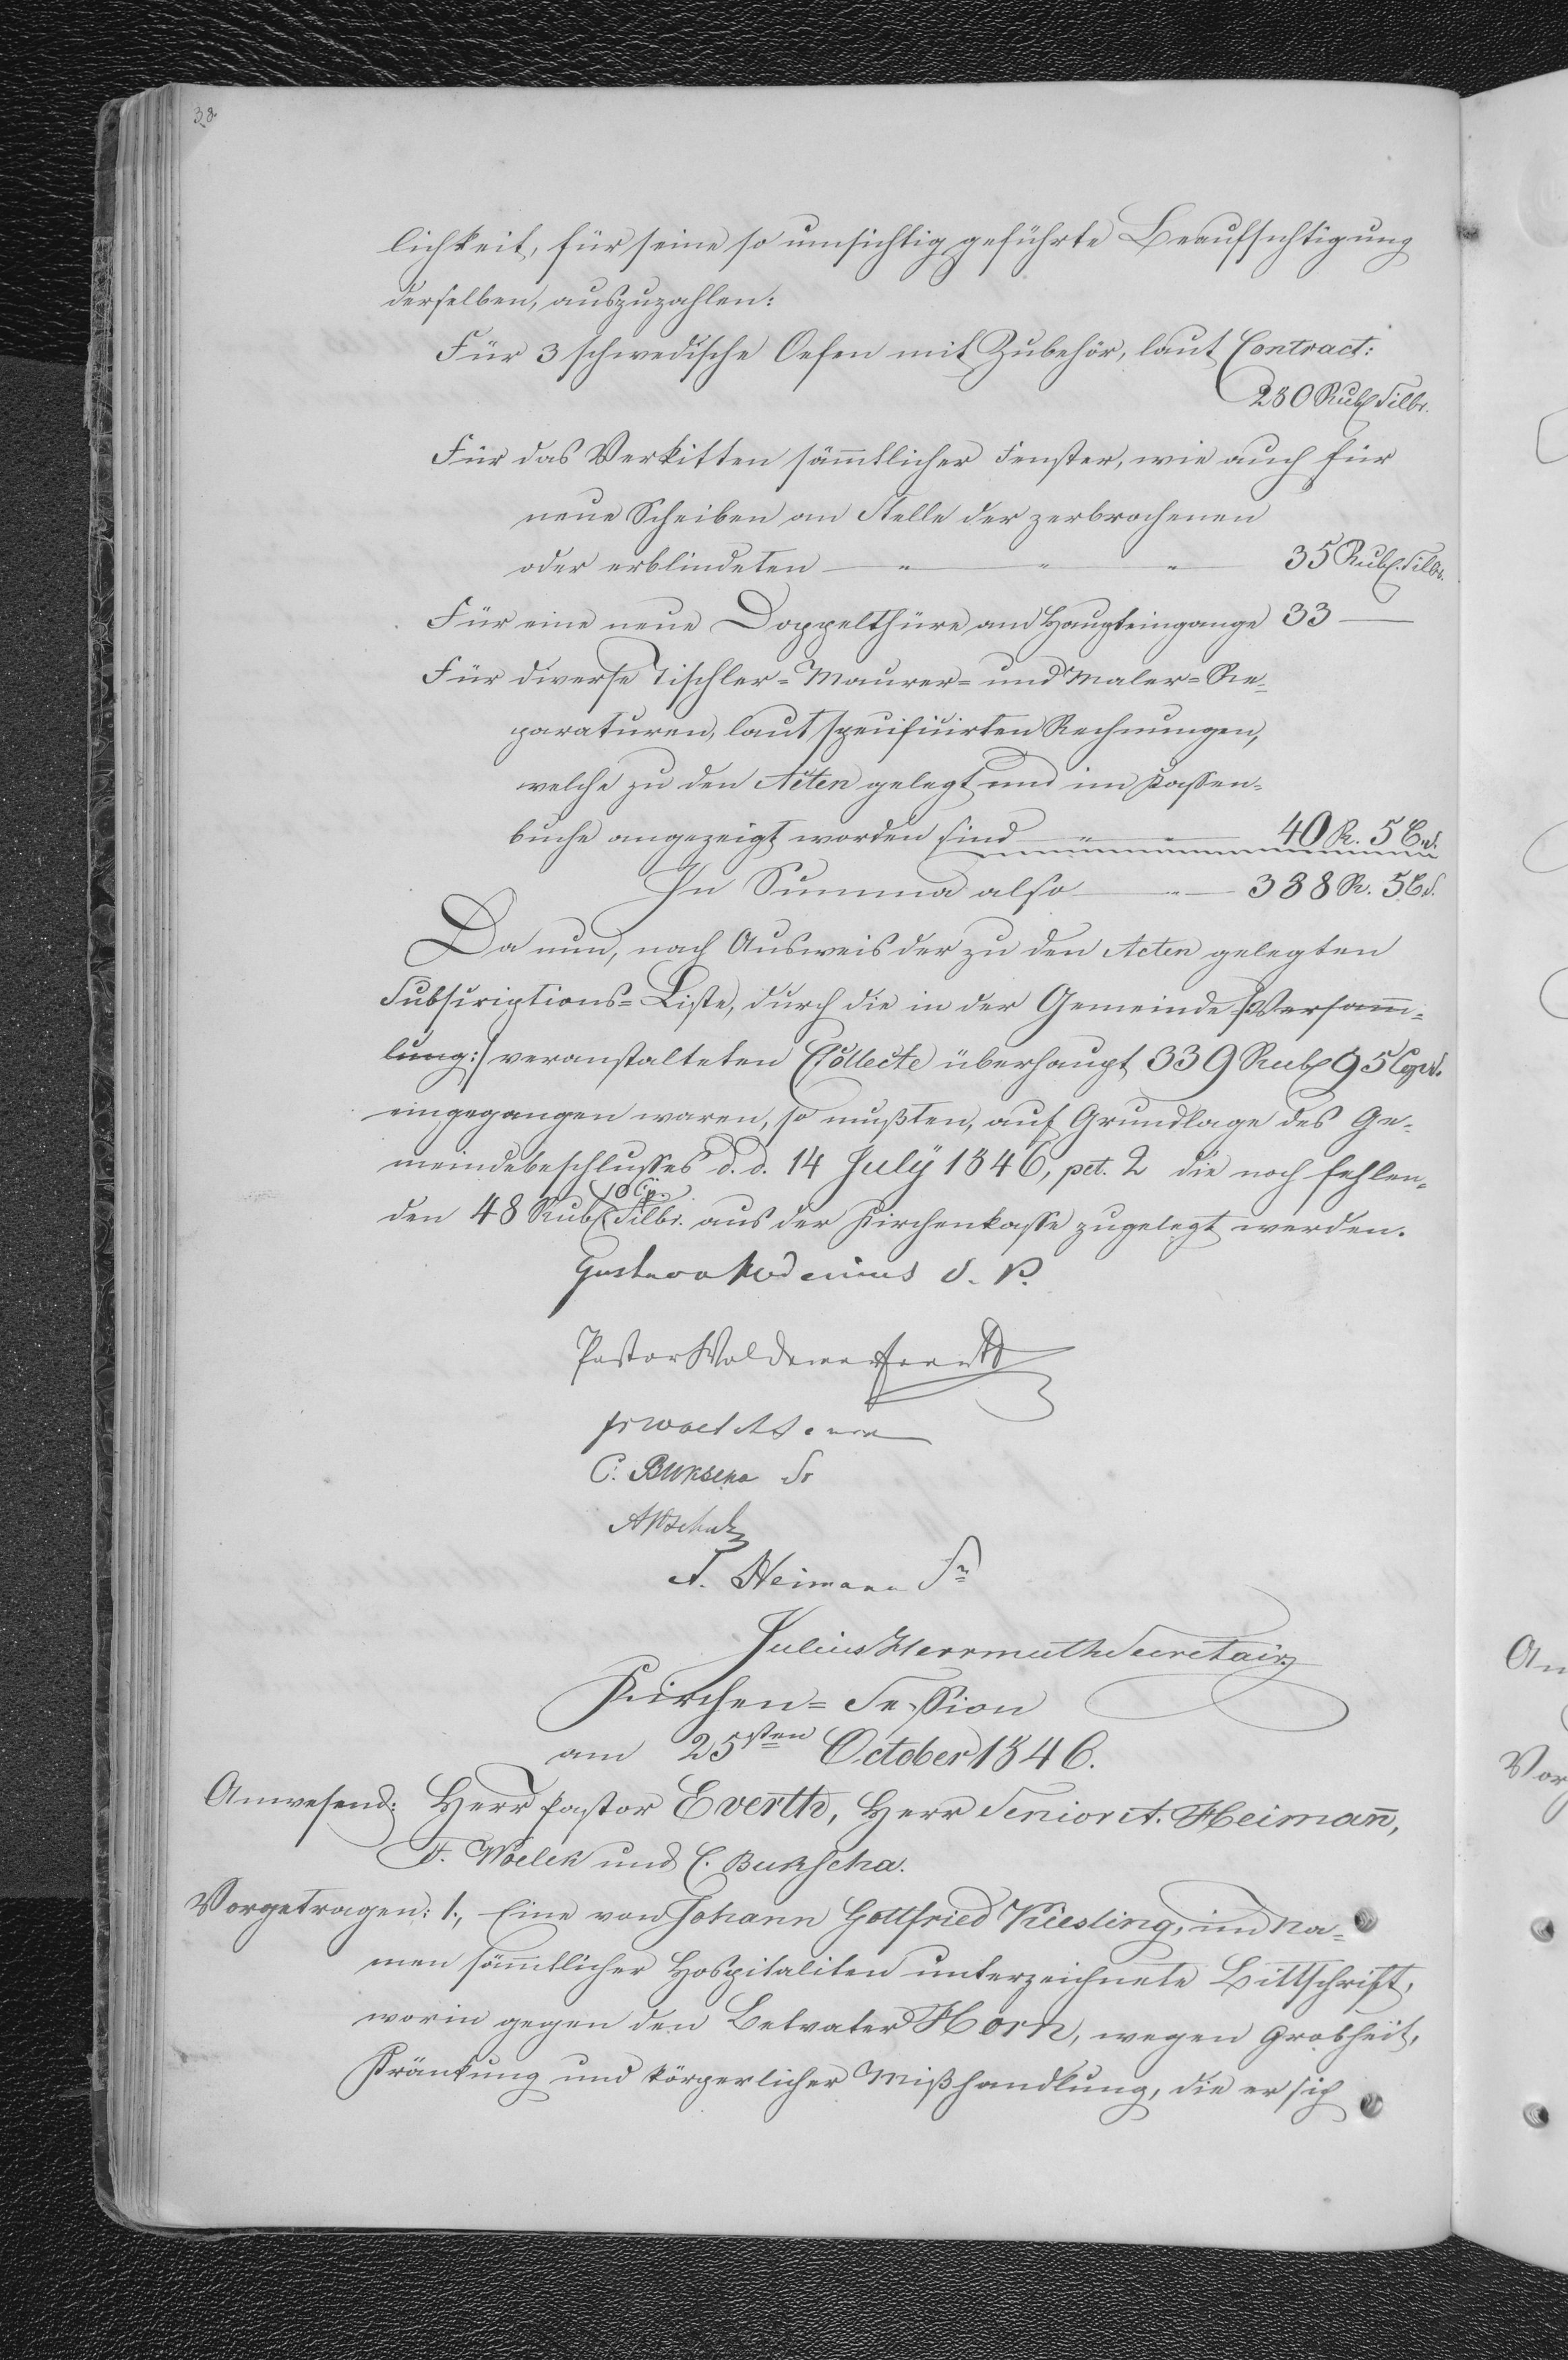 38.
lichkeit, für seine so umsichtig geführte Beaufsichtigung
derselben, auszuzahlen:
Für 3 schwedische Oefen mit Zubehör, laut Contract:
280 Rub. Silbr.
Für das Verkitten sämtlicher Fenster, wie auch für
neue Scheiben an Stelle der zerbrochenen
oder erblindeten — " — " — " — 35 Rub. Silbr.
Für eine neue Doppelthüre am Haupteingange 33 —
Für diverse Tischler- Maurer- und Maler- Re-
paraturen, laut specificirten Rechnungen,
welche zu den Acten gelegt und im Kassen-
buche angezeigt worden sind — " — 40 R. 5 C. S.
In Summa also — " — 388 R. 5 C. S.
Da nun, nach Ausweis der zu den Acten gelegten
Subscriptions-Liste, durch die in der Gemeinde /:Versam-
lung:/ veranstalteten Collecte überhaupt 339 Rub. 95 Cop. S.
eingegangen waren, so mußten, auf Grundlage des Ge-
meindebeschlusses d. d. 14 July 1846, pct. 2 die noch fehlen-
10 Cp.
den 48 Rub. Silbr. aus der Kirchenkasse zugelegt werden.
Gustav S. P.
Pastor Woldemar Everth
C. Bukscha Sr
A. Heimann Sr
Julius Herrmuth Secretair
Kirchen-Session
am 25sten October 1846.
Anwesend: Herr Pastor Everth, Herr Senior A. Heimann,
F. Woelck und C. Bukscha.
Vorgetragen: 1., Eine von Johann Gottfried Kiesling, im Na-
men sämtlicher Hospitaliten unterzeichnete Bittschrift,
worin gegen den Betvater Horn, wegen Grobheit,
Kränkung und körperlicher Mißhandlung, die er sich
An
Vor